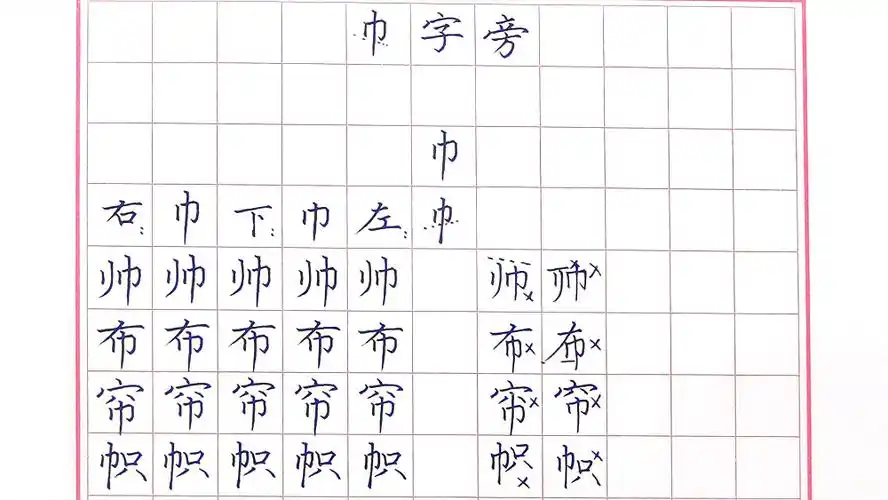 巾字旁
巾
右: 巾 下: 巾 左: 巾
帅 帅 帅 帅 帅 帅× 帅×
布 布 布 布 布 布× 布×
帘 帘 帘 帘 帘 帘× 帘×
帜 帜 帜 帜 帜 帜× 帜×